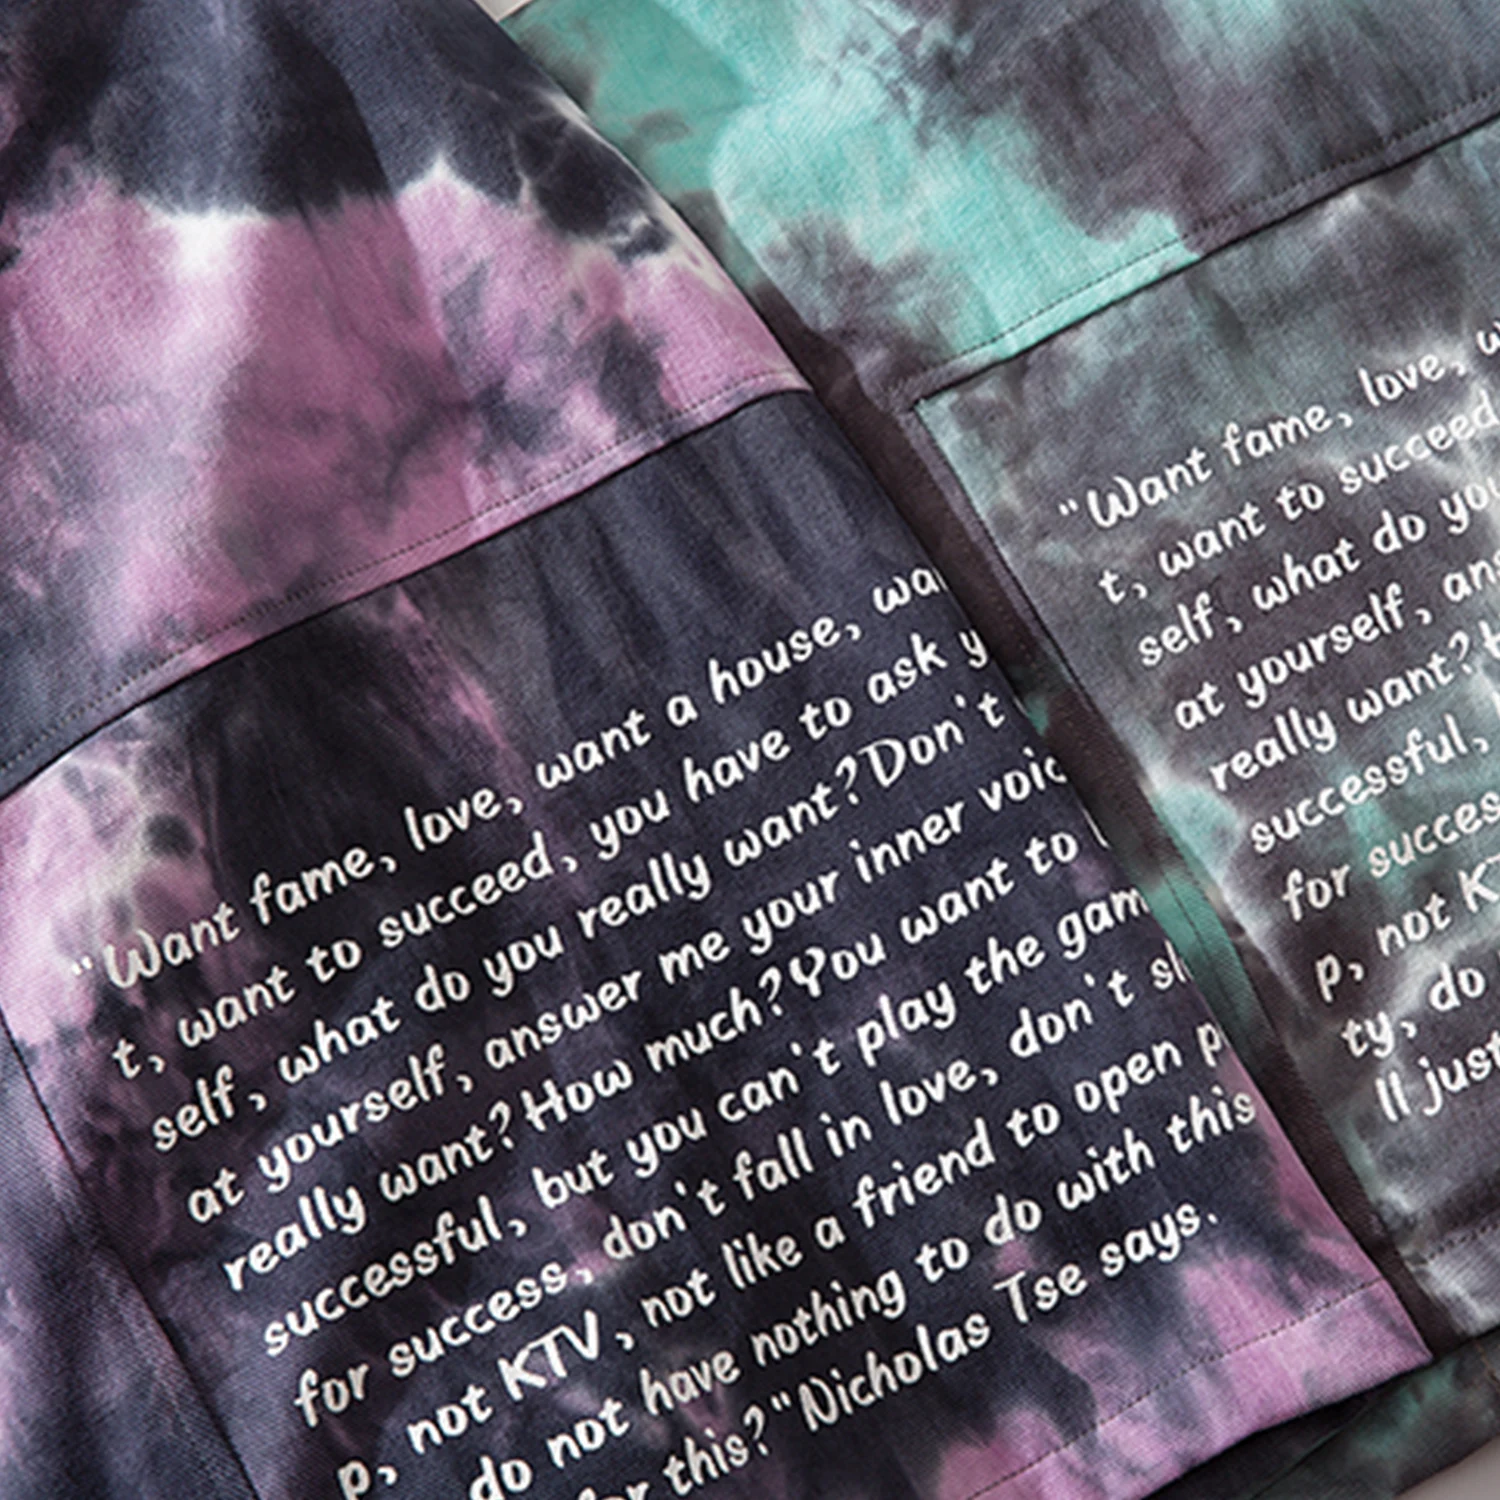 "Want fame, love, want a house,
t, want to succeed, you have to ask
self, what do you really want?Don't
at yourself, answer me your inner
really want?How much?You want to
successful, but you can't play the
for success, don't fall in love, don't
p, not KTV, not like a friend to open
do not have nothing to do with this
for this?"Nicholas Tse says.
"Want fame, love,
t, want to succeed
self, what do you
at yourself,
really want?
successful,
for
p, not
ty, do
ll just